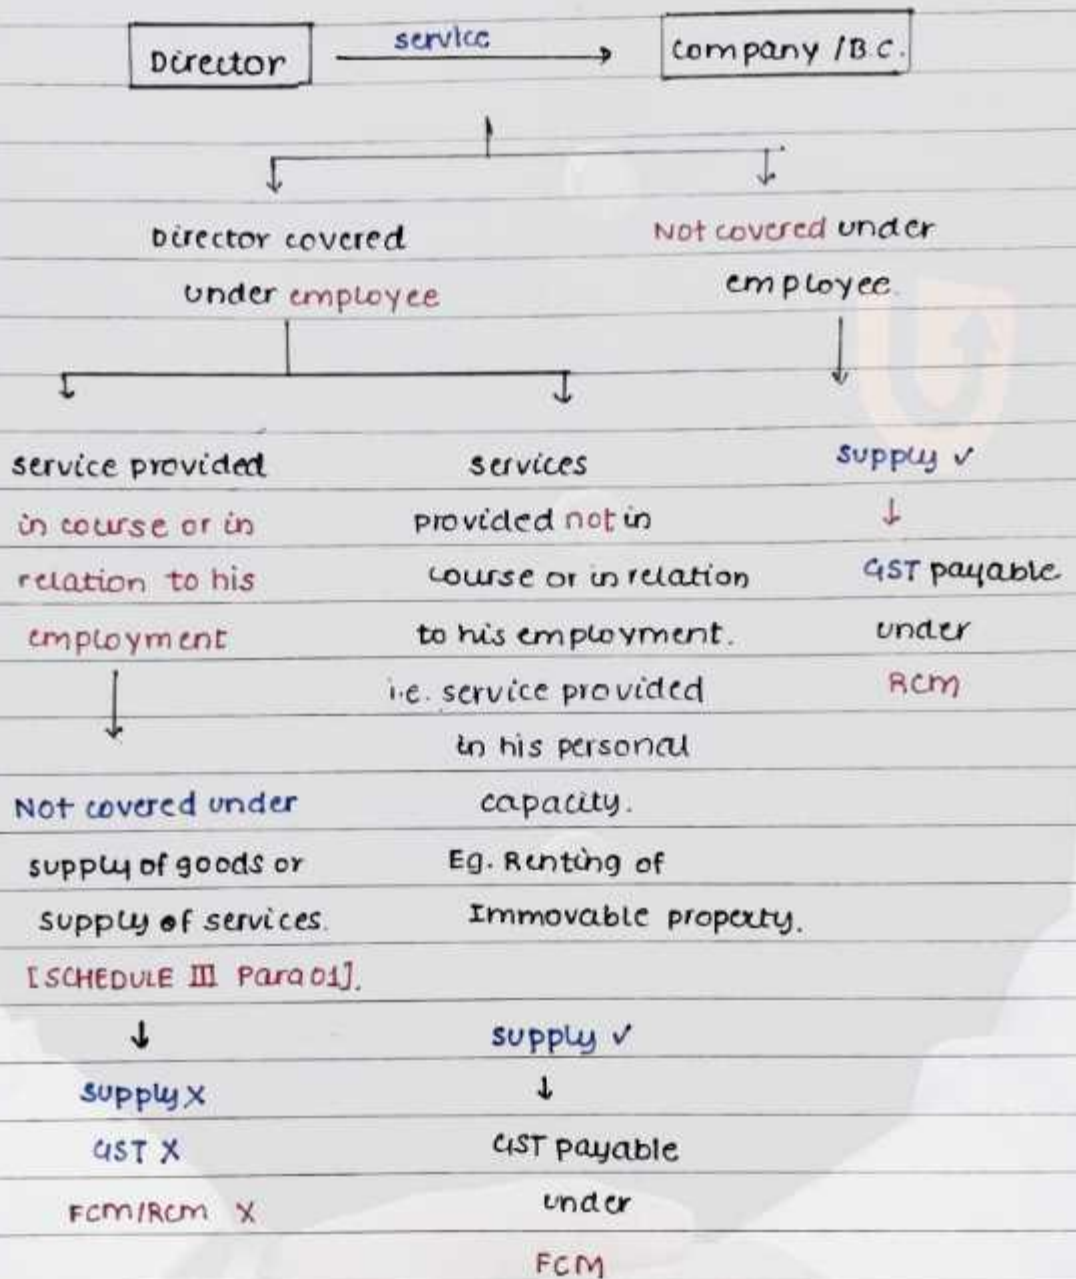 Director
service
company / B.C.
Director covered
under employee
Not covered under
employee.
service provided
in course or in
relation to his
employment
Not covered under
supply of goods or
supply of services.
[SCHEDULE III Para 01].
supply X
GST X
FCM/RCM X
services
provided not in
course or in relation
to his employment.
i.e. service provided
in his personal
capacity.
Eg. Renting of
Immovable property.
supply ✓
GST payable
under
FCM
supply ✓
GST payable
under
RCM